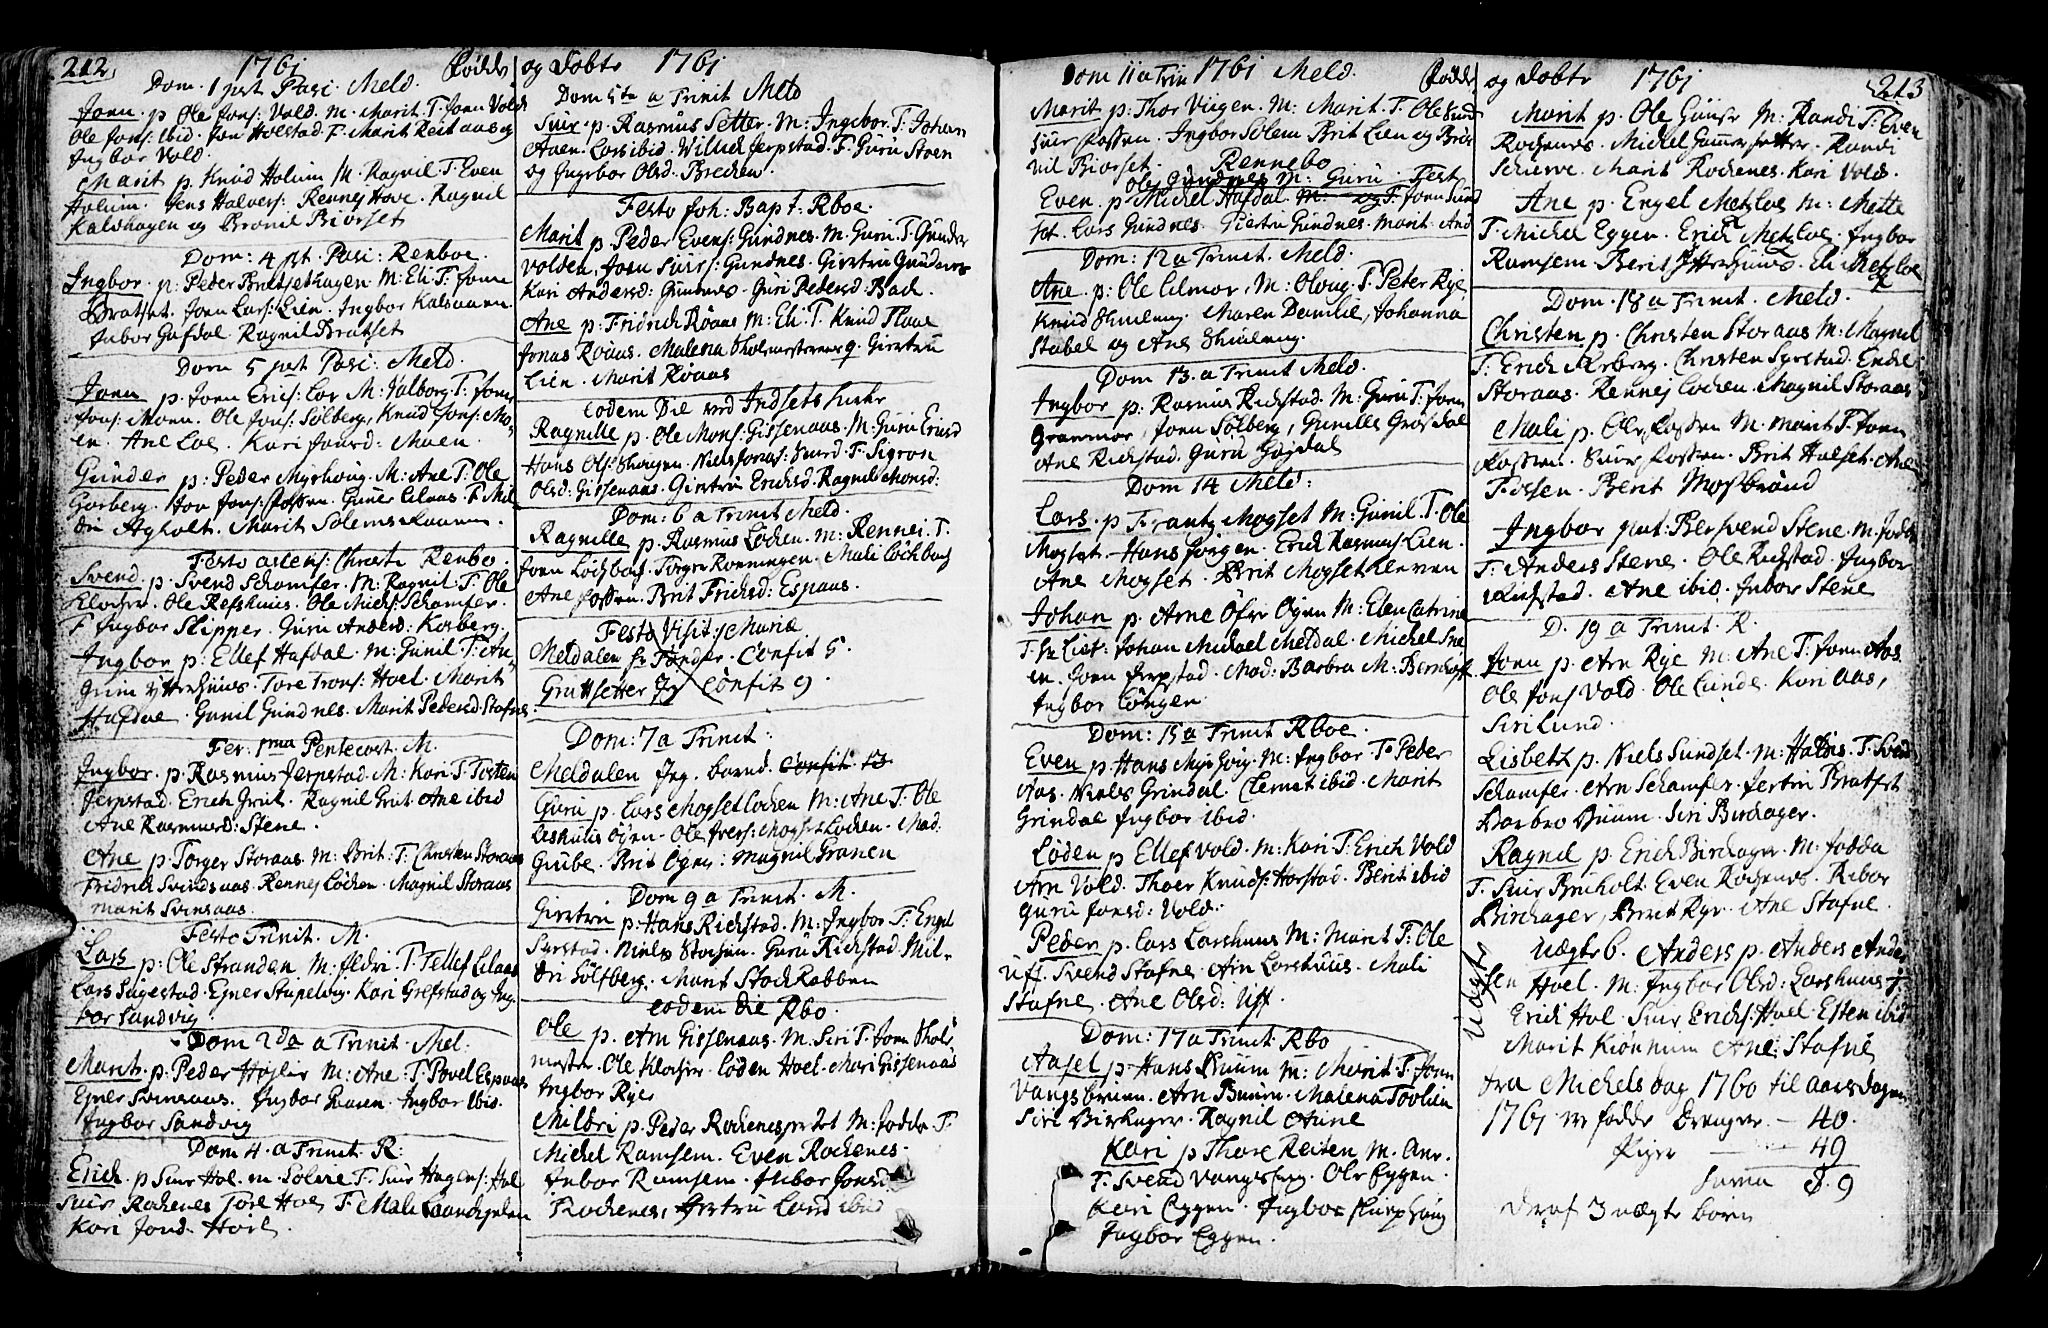 212, 1761 fødde og døbte 1761
Dom. 1 post Pasc: Meld.
Joen. p. Ole Jons: Vold. M. Marit. T. Joen Vold
Ole Jons: ibid. Jon Holstad. F. Marit Reitaas og
Ingbor Vold.
Marit p. Knud Holum M. Ragnil T. Even
Holum. Jens Halvers: Rennej Hove. Ragnil
Kalshagen og Bronil Biørset
Dom: 4 pt. Pasc: Renboe.
Ingbor. p: Peder Bratsethagen M: Eli T. Joen
Bratset. Joen Lars: Lien. Ingbor Kalsaaren
Inbor Hafdal Ragnil Bratset
Dom 5 post Pasc: Meld.
Joen p. Joen Erics: Loe M: Valborg T: Joen
Jons: Moen. Ole Jons: Solberg, Knud Jons: Mo-
en. Ane Loe. Kari Jonsd: Moen.
Gunder p: Peder Myrhoug M: Ane T. Ole
Gorberg. Hov Jons: Fossen. Guner Lilaas. F. Mil
dri Aspholt. Marit Solemskaaren.
Festo ascens: Christi Renbo
Svend. p. Svend Schamfer. M: Ragnil: T: Ole
Klocher. Ole Refshuus. Ole Nichs: Schamfer.
F Ingbor Skipper. Guru Andersd: Korberg.
Ingbor p: Ellef Hafdal. M: Gunil. T: An
grim Ytterhuus. Tore Trons: Hoel. Marit
Hafdal. Gunil Gundnes. Marit Pedersd: Stafne
Fer: 1ma Pentecost. M.
Ingbor. p. Rasmus Jerpstad. M: Kari T. Tosten
Jerpstad. Erich Grut. Ragnil Grut. Ane ibid
Ane Rasmusd: Stene.
Ane p Torger Storaas. M: Brit: T: Christen Storaas
Fridrich Svinsaas. Rennej Løchen. Magnil Storaas
Marit Svinsaas.
Festo Trinit. M.
Lars p: Ole Stranden M: Ildri T. Tellef Lilaas
Lars Sugestad. Ejner Stupelvig. Kari Grefstad og Ing-
bor Sandvig
Dom 2da a Trinit. Mel.
Marit. p. Peder Højlie M: Ane: T Povel Espaas
Ejner Svinsaas. Ingbor Haaren. Ingbor ibid.
Ingbor Sandvig
Dom 4. a Trinit. R:
Erich. p Siur Hol. m Solvie T. Siur Hagens: Hol
Siur Rochenes Tore Hoel F. Mali
Kari Jonsd. Hoel.
Dom 5te a Trinit Meld
Siur. p. Rasmus Setter. M: Ingebor. T: Johan
Aaen. Lars ibid. Willich Jerpstad. F. Guru Stoen
og Ingebor Olsd: Brechen.
Festo Joh: Bapt. Rboe.
Marit p. Peder Evens: Gundnes. M Guru T. Gunder
volden, Joen Siurs: Gundnes. Giertru Gundnes
Kari Andersd: Gunnes. Guri Pedersd: Bach.
Ane p. Fridrich Røaas M: Eli. T. Knud Flaae
Jonas Røaas. Malena Skolmesterens g. Giertru
Lien. Marit Røaas
eodem Die ved Indsets kirke
Ragnille p. Ole Mons: Gissenaas. M: Guru Ericsd
Hans Ols: Skogen. Niels Jonas: Siurd. F. Sigron
Olsd: Gissenaas. Giertru Ericksd. Ragnil Monsd:
Dom: 6 a Trinit Meld.
Ragnille p. Rasmus Løchen. M: Rennei. T.
Joen Lochsbach. Torger Rønningen. Mali Lochbach
Ane Fossen. Brit Frichsd: Espaas.
Festo Visit: Mariæ
Meldalen hr Tønder. Confit 5.
Gruttsetter Confit 9.
Dom: 7 a Trinit:
Meldalen Jeg. barnd. Confit: 13
Guru p. Lars Mogset Lochen M: Ane T: Ole
Leskulis øyen. Ole Ivers: Mogset Lochen. Mad:
Grube. Brit Oyen: Magnil Granen
Dom 9 a Trinit. M.
Giertru p. Hans Richstad. M: Ingbor T: Engel
Syrstad. Niels Stochen. Guru Richstad. Mil-
dri Solfberg. Marit Stochebben
eodem die Rbo.
Ole p. Arn Gissenaas. M. Siri T. Joen Skol
mester. Ole Klocher. Loden Hoel. Mari Gissenaas
Ingbor Rye
Mildri p. Peder Rochenes M: Jodda. T.
Michel Ramsem. Even Rochenes.
Inbor Ramsem. Inbor Jonsd.
Rochenes, Giertru Lund ibid
Dom 11 a Trin 1761 Meld. fødde og døbte 1761 213
Marit p: Thor Viigen. M: Marit. T. Ole Sund
Siur Fossen. Ingbor Solem Brit Lien og Bro
nil Biorset. Rennebo
Ole Gundnes M: Guru Fest
Even. p Michel Hafdal. M: og F. Joen Sund
set. Lars Gundnes. Giertru Gundnes. Marit. And
Dom: 12 a Trinit. Meld.
Ane. p: Ole Elmor, M: Olvig. T. Peter Rye
Knud Skieleng. Maren Damlie, Johanna
Stabel og Ane Skieleng.
Dom 13. a Trinit Meld.
Ingbor p. Rasmus Richstad. M: Guru T: Joen
Granmoe, Joen Solberg, Gunilla Grosdal
Ane Richstad. Guru Gagdal
Dom 14 Meld:
Lars. p Frantz Mogset M: Gunil. T. Ole
Mogset. Hans Jørgen. Erich Rasmus Lien.
Ane Mogset. Brit Mogset Kleven
Johan p. Arne Øfre Ogen M: Elen Catrine
T. hr Lief: Johan Michael Meldal. Michel Sne
en. Joen Jerpstad. Mad: Barbra M: Bernhoft
Ingbor Løngen
Dom: 15 a Trinit Rboe.
Even p Hans Myrhoug. M: Ingbor T. Peder
Aas. Niels Grindal. Clemet ibid. Marit
Grindal Ingbor ibid.
Loden p Ellef Vold. M: Kari. T. Erich Vold
Arn Vold. Thoer Knuds: Horstad. Berit ibid
Guru Jonsd: Vold.
Peder p. Lars Larshuus M: Marit T: Ole
Uff. Svend Stafne. Arn Larshuus. Mali
Stafne. Ane Olsd: Uff.
Dom: 17 a Trinit. Rbo
Aasel p Hans Buum M: Marit. T. Joen
Vangsbruun. Arn Buum. Malena Tovlien
Siri Birkager. Ragnil Aune
Kari p Thore Reiten M. Ane.
T. Svend Vangsberg. Ole Eggen.
Kari Eggen. Ingbor
Ingbor Eggen.
Marit p. Ole Guiser M: Randi T. Even
Rochenes. Michel Gunnersetter. Randi
Schierve. Marit Rochenes. Kari Volds.
Ane p. Engel Metzloe M: Mette
T. Michel Eggen. Erich Metzloe. Ingbor
Ramsem Berit Ytterhuus. Eli Metzloe
Dom. 18 a Trinit. Meld.
Christen p. Christen Storaas M: Magnil
T. Erich Korberg. Christen Syrstad. Endel
Storaas. Rennej Lochen. Magnil Storaas
Mali p. Ole Fossen M: marit T. Joen
Fossen. Siur Fossen. Brit Holset. Ane
Fossen. Berit Mossbrønd
Ingbor pat: Bersvend Stene. M. Jodde
T. Anders Stene. Ole Richstad. Ingbor
Richstad. Ane ibid. Inbor Stene
D. 19 a Trinit. R.
Joen p. Arn Rye M: Ane T. Joen Aas
Ole Jons Vold. Ole Lunde. Kari Aas,
Siri Lund.
Lisbeth p. Niels Sundset. M: Halvis. T. Svend
Schamfer. Arn Schamfer. Jertru Bratset
Barbro Buum. Siri Birchager.
Ragnil p. Erich Birchager. M: Jodda
T. Siur Bruholt. Even Rochenes. Rebor
Birchager, Berit Rye. Ane Stafne
Uægte
Uægte b. Anders p. Anders Ander
sen Hoel. M: Ingbor Olsd: Larshuus T.
Erich Hol Siur Erichs: Hoel. Esten ibid
Marit Kiønnum Ane: Stafne
fra Michels dag 1760 til aarsdagen
1761 er fødde Drenger — 40.
Piger — 49
Suma 89
Deraf 3 uægte børn